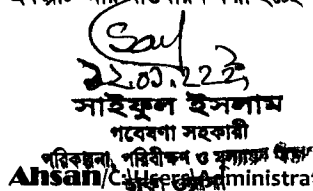 ১২.০১.২২ইং
সাইফুল ইসলাম
গবেষণা সহকারী
পরিকল্পনা, পরিবীক্ষণ ও মূল্যায়ন বিভাগ
Ahsan/C:\Users\Administra
ঢাকা ওয়াসা